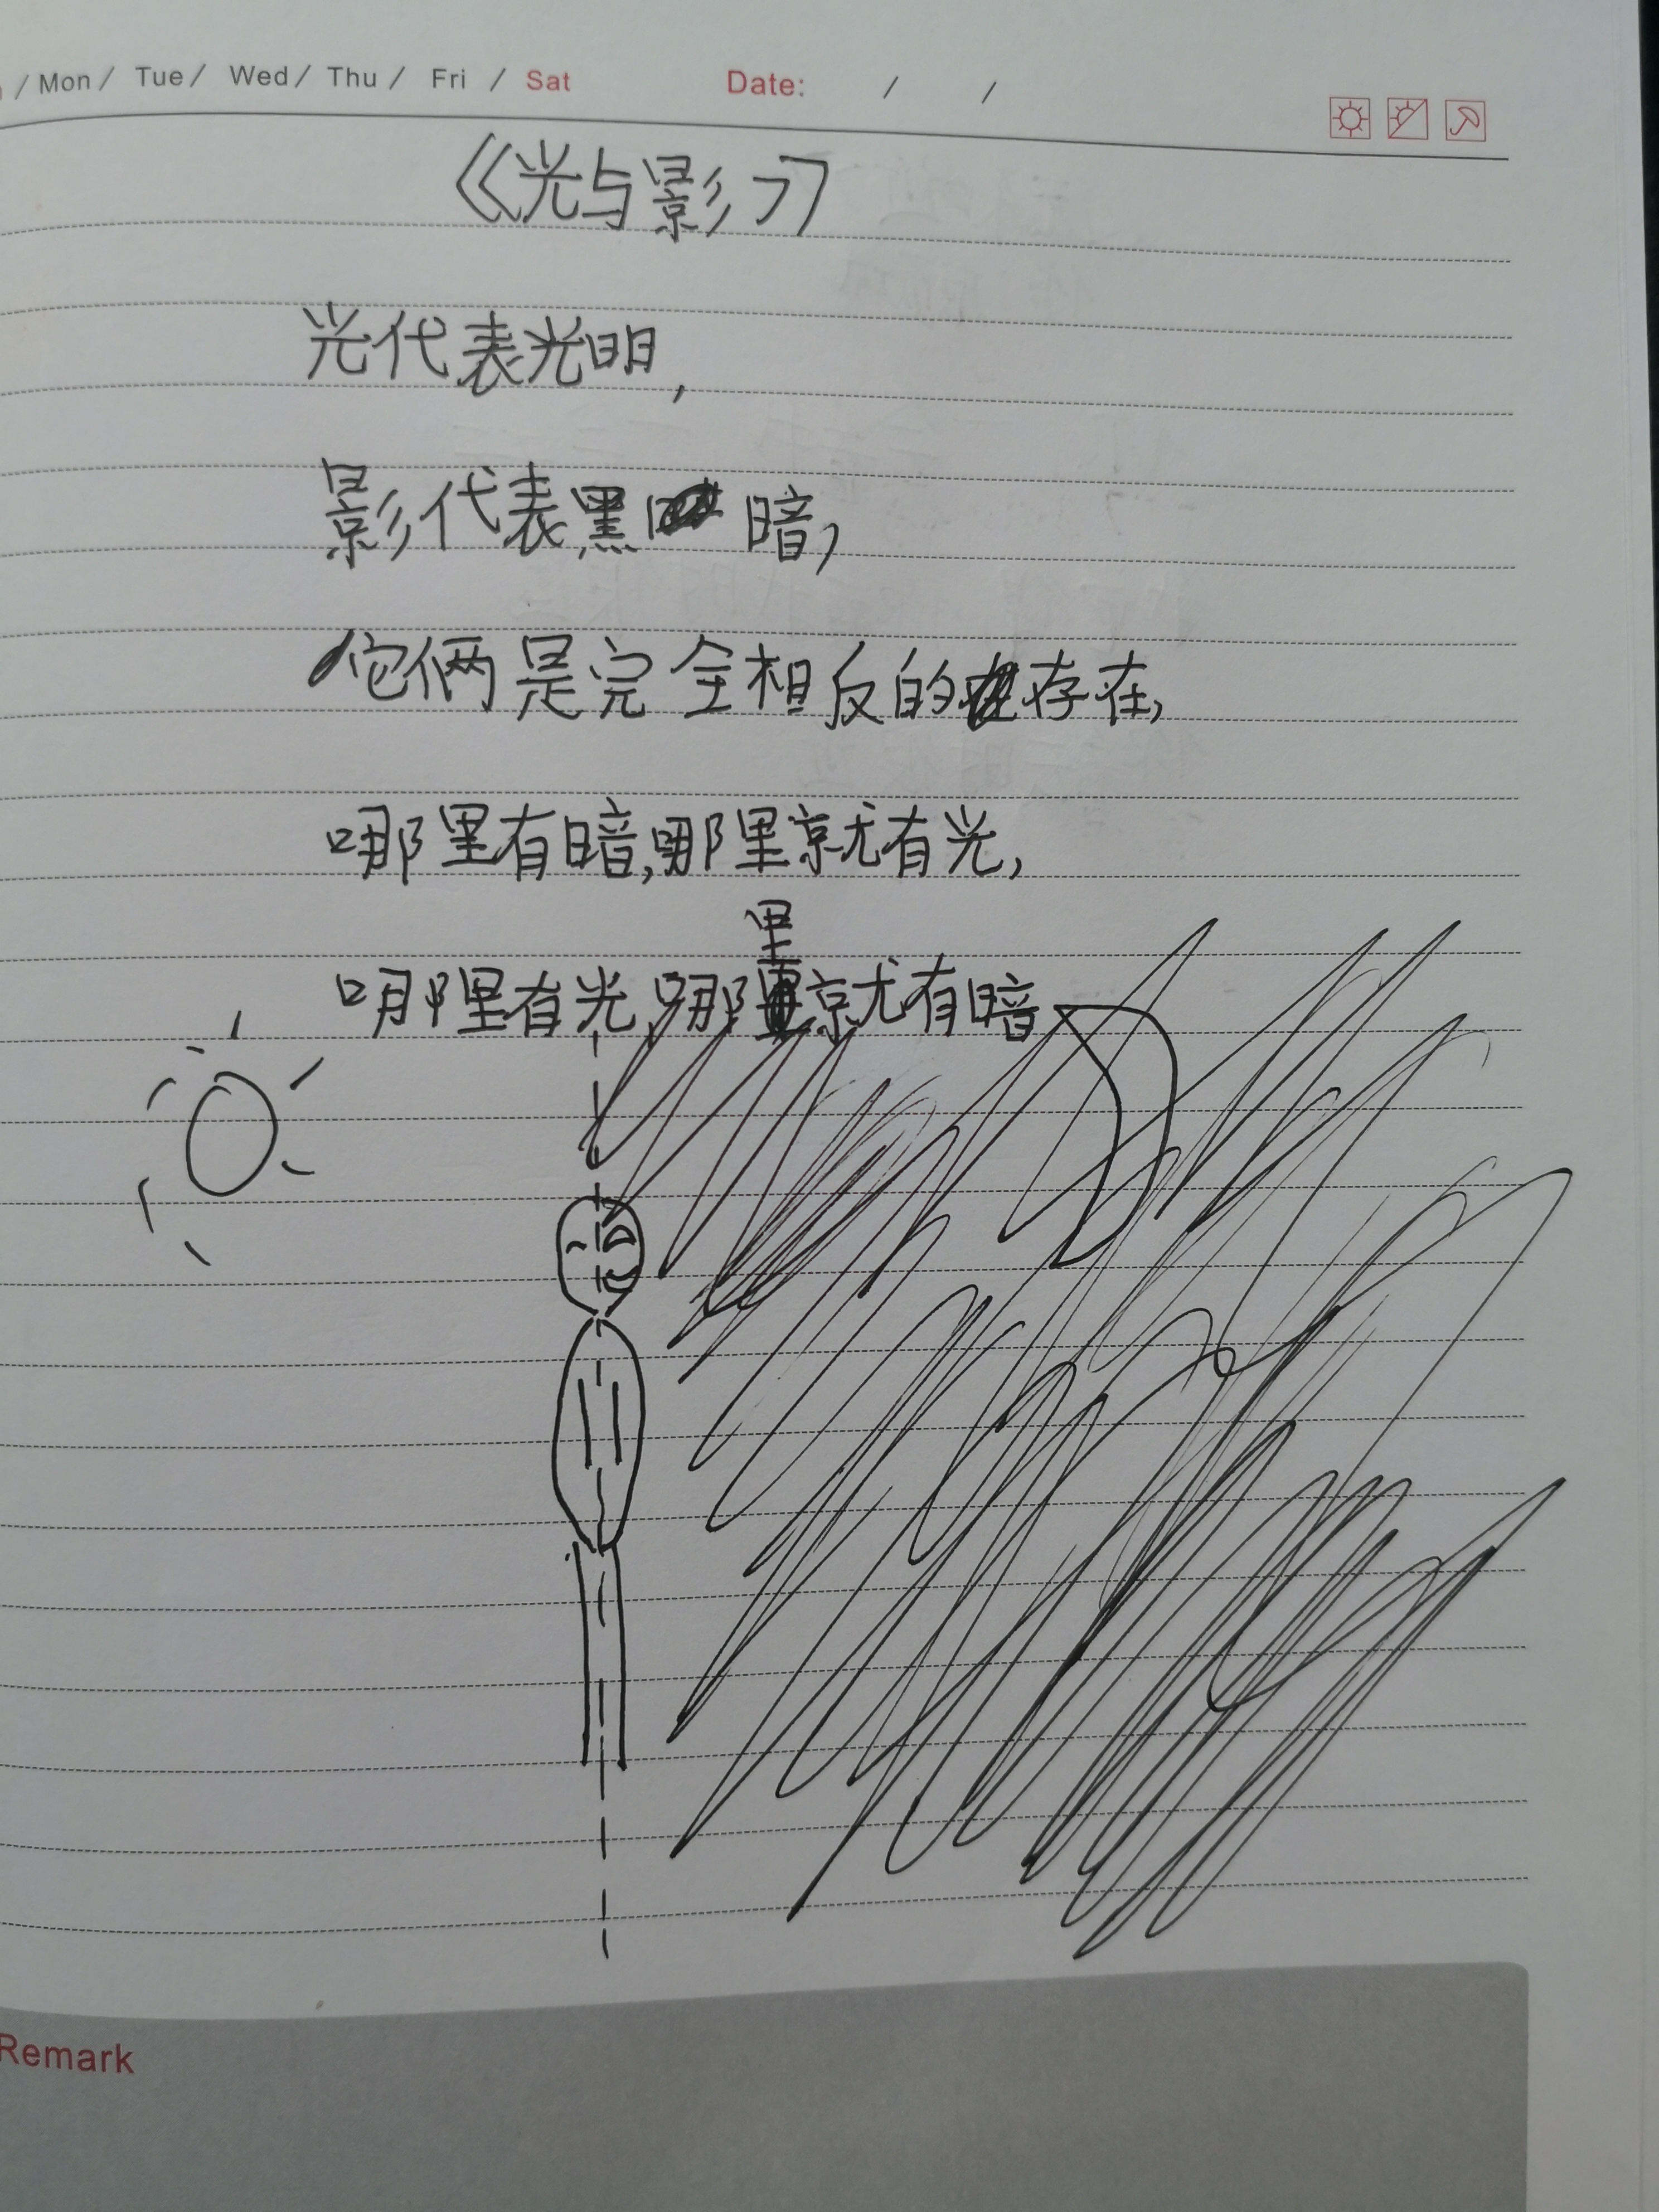 / Mon / Tue / Wed / Thu / Fri / Sat Date: / /
《光与影》
光代表光明,
影代表黑暗,
他俩是完全相反的存在,
哪里有暗,哪里就有光,
哪里有光,哪里就有暗
Remark